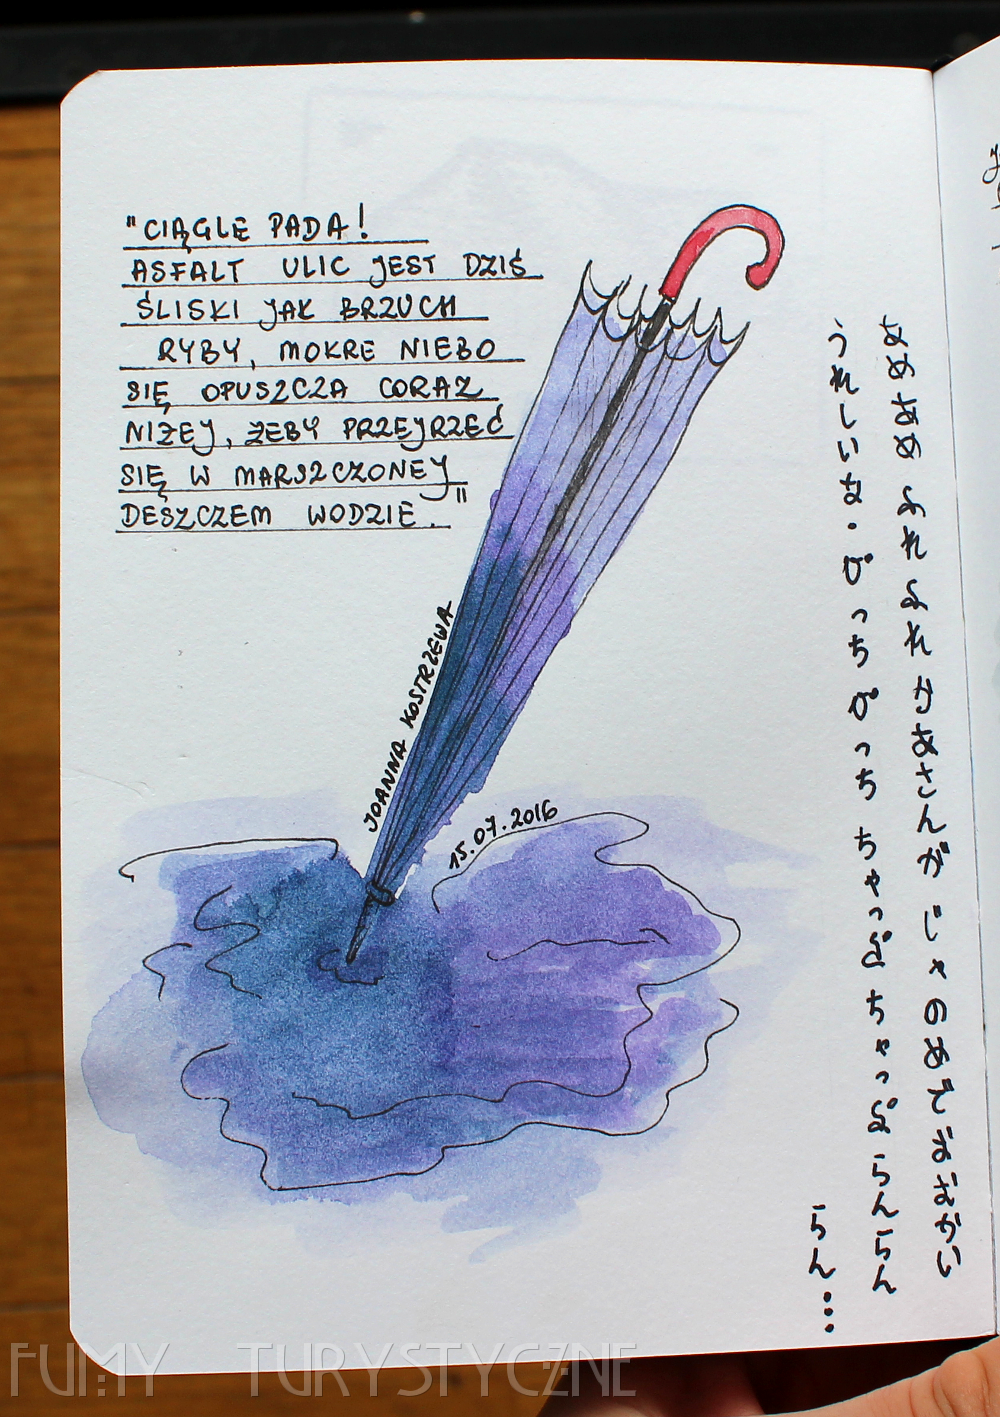 "CIĄGLE PADA!
ASFALT ULIC JEST DZIŚ
ŚLISKI JAK BRZUCH
RYBY, MOKRE NIEBO
SIĘ OPUSZCZA CORAZ
NIŻEJ, ŻEBY PRZEJRZEĆ
SIĘ W MARSZCZONEJ
DESZCZEM WODZIE."
JOANNA KOSTRZEWA
15.07.2016
あめあめ ふれふれ かあさんが じゃのめでおむかい
うれしいな・ぴっちぴっち ちゃっぷちゃっぷらんらん
らん...
FUMY TURYSTYCZNE